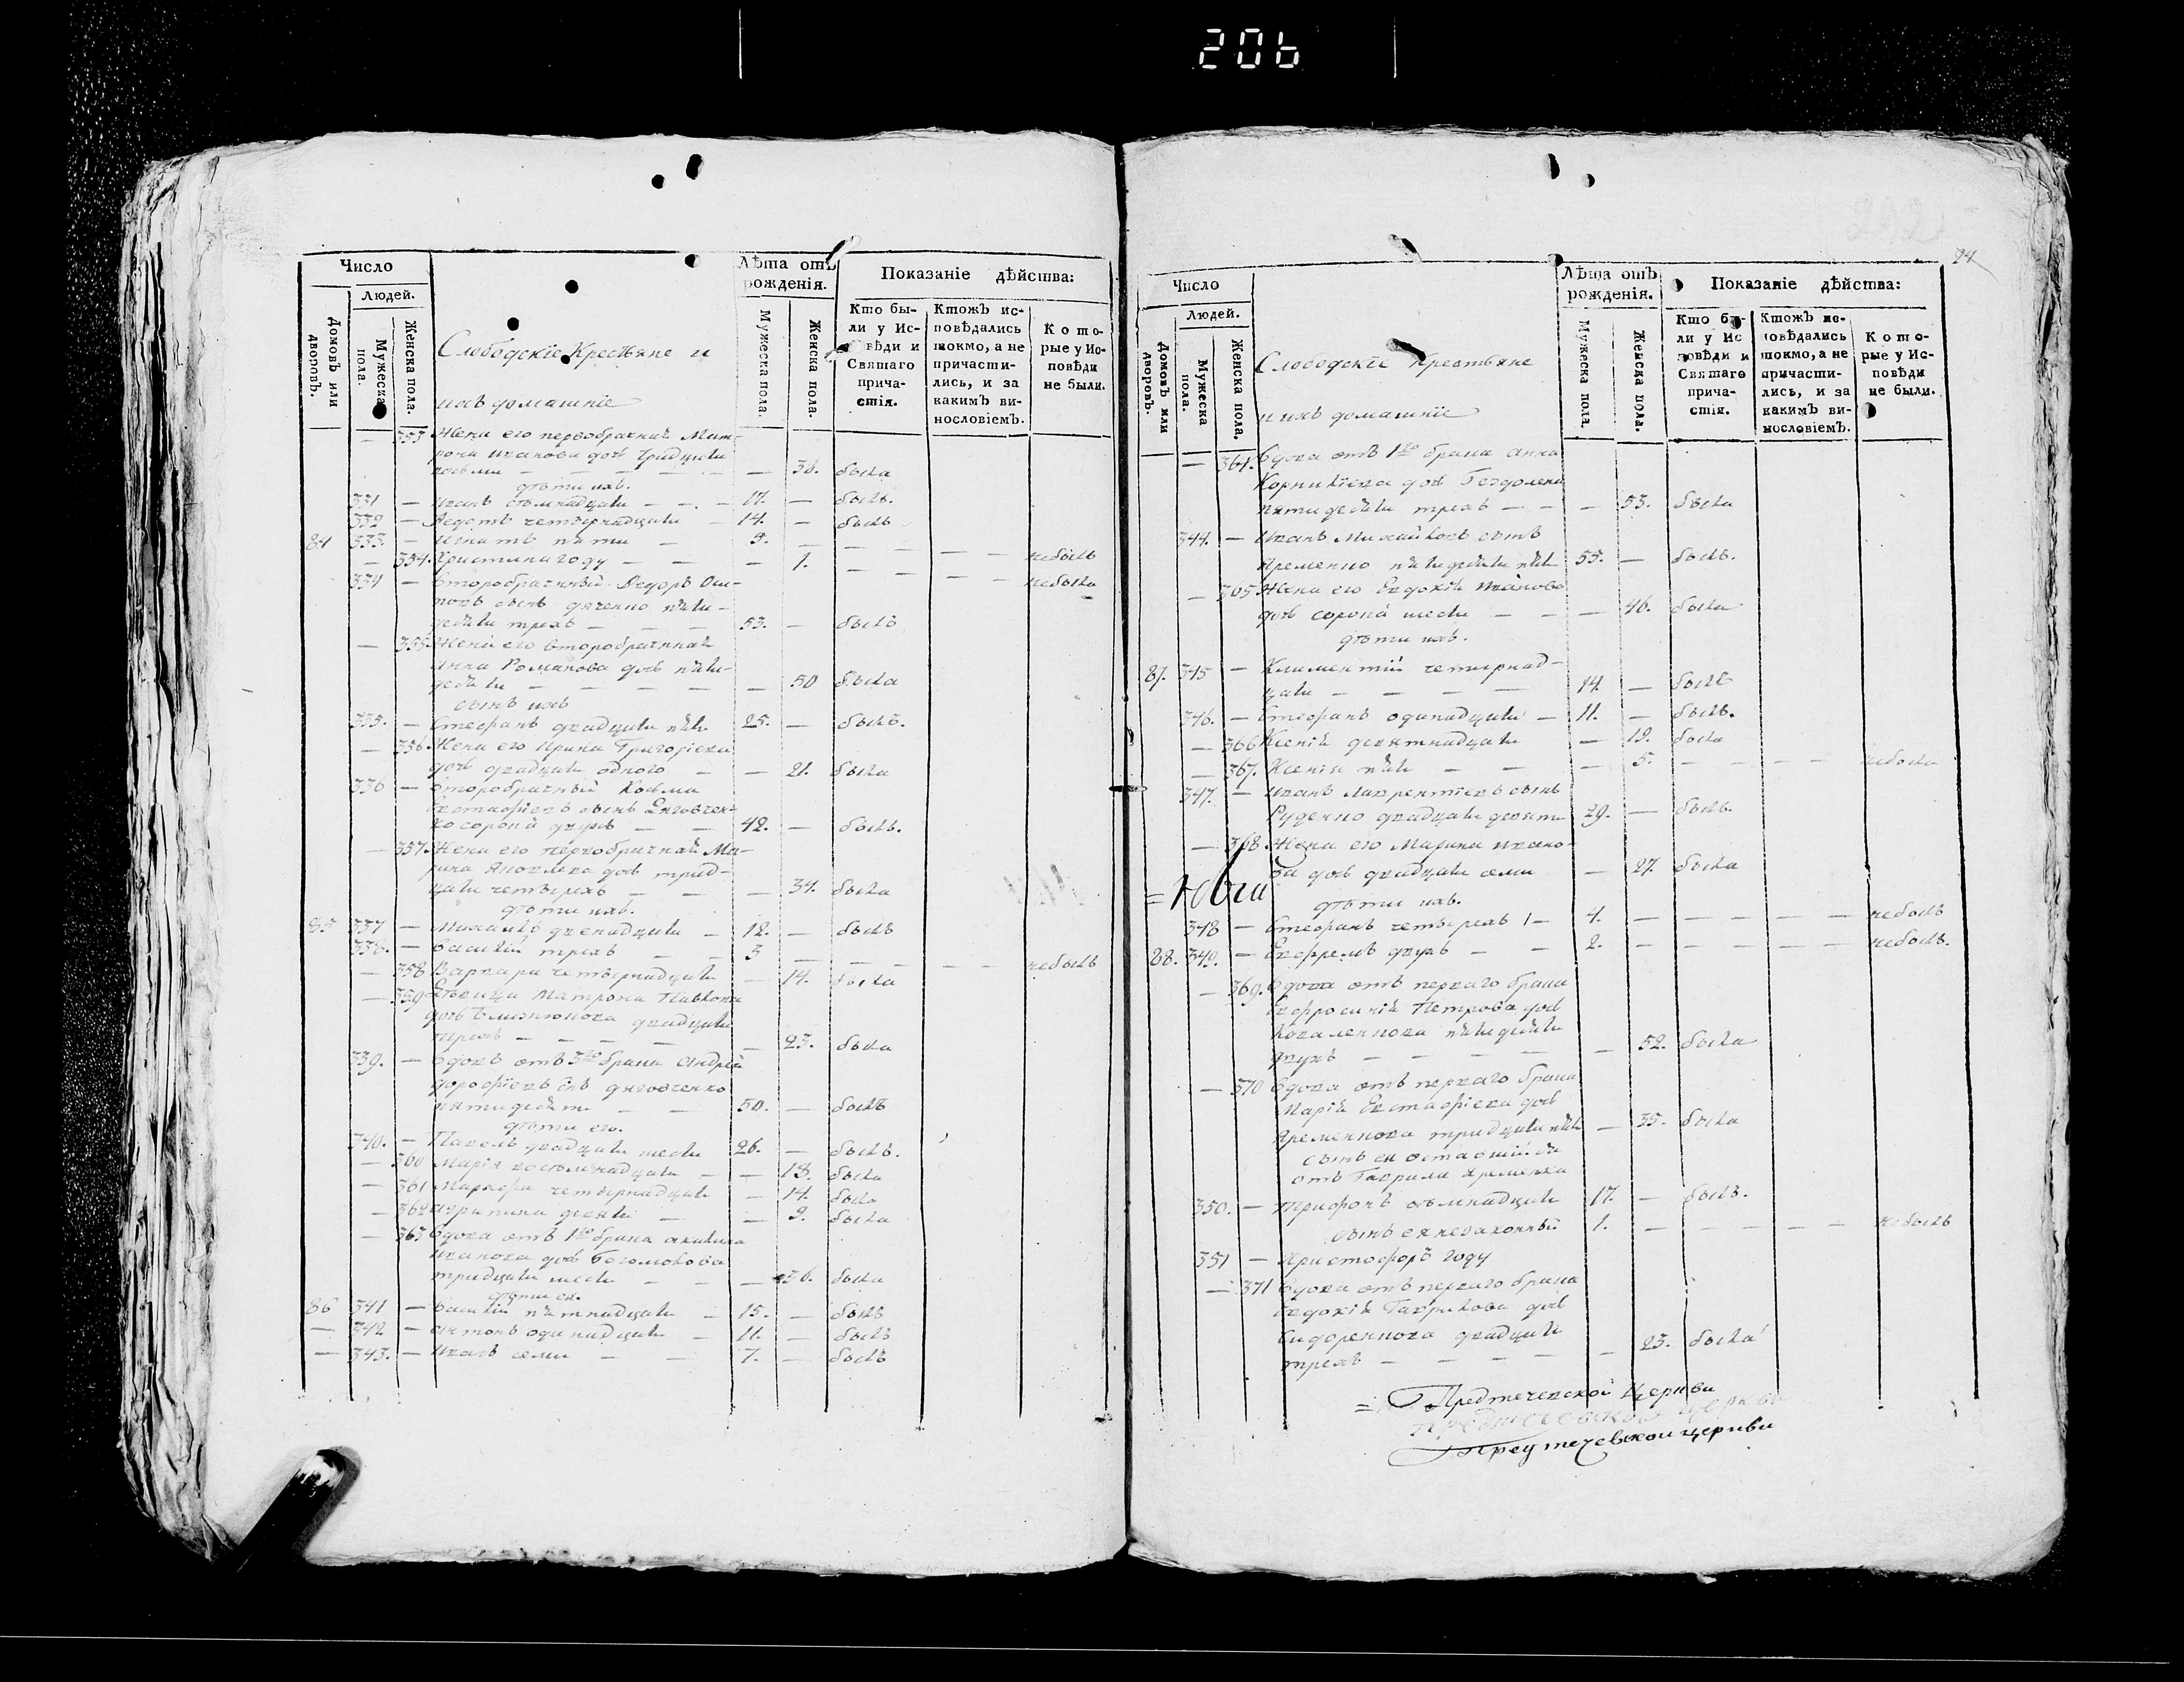 206
Число
Людей.
Домовъ или дворовъ.
Мужеска пола.
Женска пола.
Слободскіе Крестьяне и
ихъ домашніе
Лѣта отъ рожденія.
Мужеска пола.
Женска пола.
Показаніе дѣйства:
Кто были у Исповѣди и Святаго причастія.
Ктожъ исповѣдались токмо, а не причастились, и за какимъ винословіемъ.
Которые у Исповѣди не были.
— 353 Жена его первобрачная Мат-
рона Иванова дочь тридцати
восьми — — — — 38. была
дѣти ихъ.
331 — Иванъ седмнадцати — — 17. — былъ.
332 — Федотъ четырнадцати — 14. — былъ
84 333. — Игнатъ пяти — 5. — — — — небылъ
— 354. Христина году — — — 1. — — — — небыла
334 — Второбрачный Федоръ
сынъ пяти-
десяти трехъ — 53. — былъ
— 355 Жена его второбрачная
Анна Романова дочь пяти-
десяти — — — — 50 была
сынъ ихъ
335. — Стефанъ двадцати пяти 25. — былъ.
— 356 Жена его Ирина Григоріева
дочь двадцати одного — — 21. была
336 — Второбрачный Косма
Евстафіевъ сынъ
сорока двухъ — 42. — былъ.
— 357 Жена его первобрачная Ма-
рина Яковлева дочь трид-
цати четырехъ — — 34. была
дѣти ихъ.
85 337 — Михаилъ двенадцати — 12. — былъ
338. — Василій трехъ — — 3 — — — — небылъ
— 358 Варвара четырнадцати — 14. была
— 359 Дѣвица Матрона Павлова
дочь двадцати
трехъ — — — — 23. была
339. — Вдовъ отъ 3го брака Андрей
Дорофіевъ снъ
пятидесяти — — 50. — былъ
дѣти его.
340. — Павелъ двадцати шести 26. — былъ.
— 360 Марія восемнадцати — — 18. была
— 361 Марфа четырнадцати — 14. была
— 362 Агрипина девяти — — 9. была
— 363 Вдова отъ 1го брака Акилина
Иванова дочь Богомолова
тридцати шести — — — 36. была
дѣти ея.
86 341 — Василій пятнадцати — 15. — былъ
— 342 — Антонъ одинадцати — 11. — былъ
— 343. — Иванъ семи — — 7. — былъ
292
Число
Людей.
Домовъ или дворовъ.
Мужеска пола.
Женска пола.
Слободскіе Крестьяне
и ихъ домашніе
Лѣта отъ рожденія.
Мужеска пола.
Женска пола.
Показаніе дѣйства:
Кто были у Исповѣди и Святаго причастія.
Ктожъ исповѣдались токмо, а не причастились, и за какимъ винословіемъ.
Которые у Исповѣди не были.
— 364. Вдова отъ 1го брака Анна
Корниліева дочь
пятидесяти трехъ — — — 53. была
344. — Иванъ Михайловъ сынъ
Яременко пятидесяти пяти 55. — былъ.
— 365 Жена его Евдокія Иванова
дочь сорока шести — — — 46. была
дѣти ихъ.
87. 345 — Климентій четырнад-
цати — — — — 14. — былъ
346. — Стефанъ одинадцати — 11. — былъ.
— 366 Ксенія девятнадцати — 19. была
— 367. Ксенія пяти — — — 5. — — — — небыла
347. — Иванъ Лаврентіевъ сынъ
Руденко двадцати девяти 29. — былъ.
— 368. Жена его Марина Ивано-
ва дочь двадцати семи — 27. была
дѣти ихъ.
348 — Стефанъ четырехъ — 4. — — — — — небылъ
88. 349. — Евфремъ двухъ — — 2. — — — — — небылъ.
— 369. Вдова отъ перваго брака
Евфросинія Петрова дочь
Коваленкова пятидесяти
двухъ — — — — — 52. была
— 370 Вдова отъ перваго брака
Марія Евстафіева дочь
Яременкова тридцати пяти — 35. была
сынъ ея оставшійся
отъ Гаврила Яременка
350. — Трифонъ седмнадцати 17. — былъ.
сынъ ея незаконный 1. — — — — — небылъ
351 — Христофоръ году
— 371 Вдова отъ перваго брака
Евдокія Гаврилова дочь
Сидоренкова двадцати
трехъ — — — — — 23. была
= Предтечевской Церкви
Предтечевской церкви
Предтечевской церкви